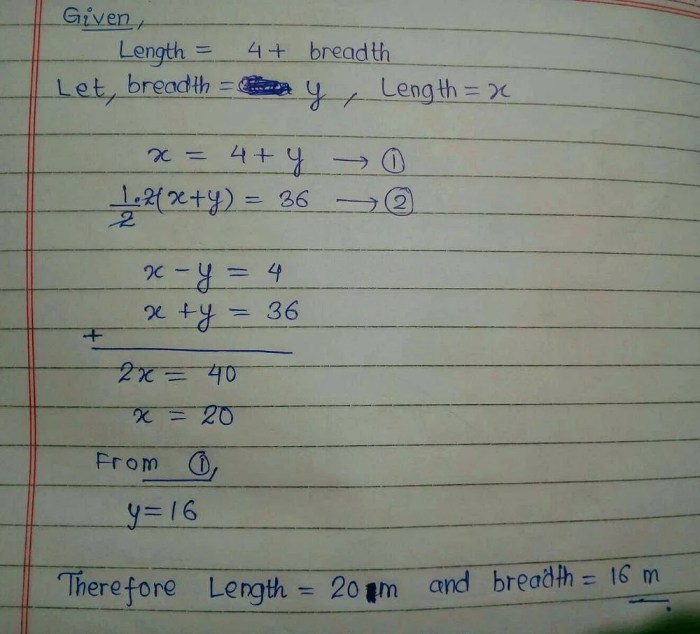 Given,
Length = 4 + breadth
Let, breadth = y , Length = x
x = 4 + y → ①
1/2 · 2(x+y) = 36 → ②
x - y = 4
x + y = 36
+
2x = 40
x = 20
From ①,
y = 16
Therefore Length = 20 m and breadth = 16 m.